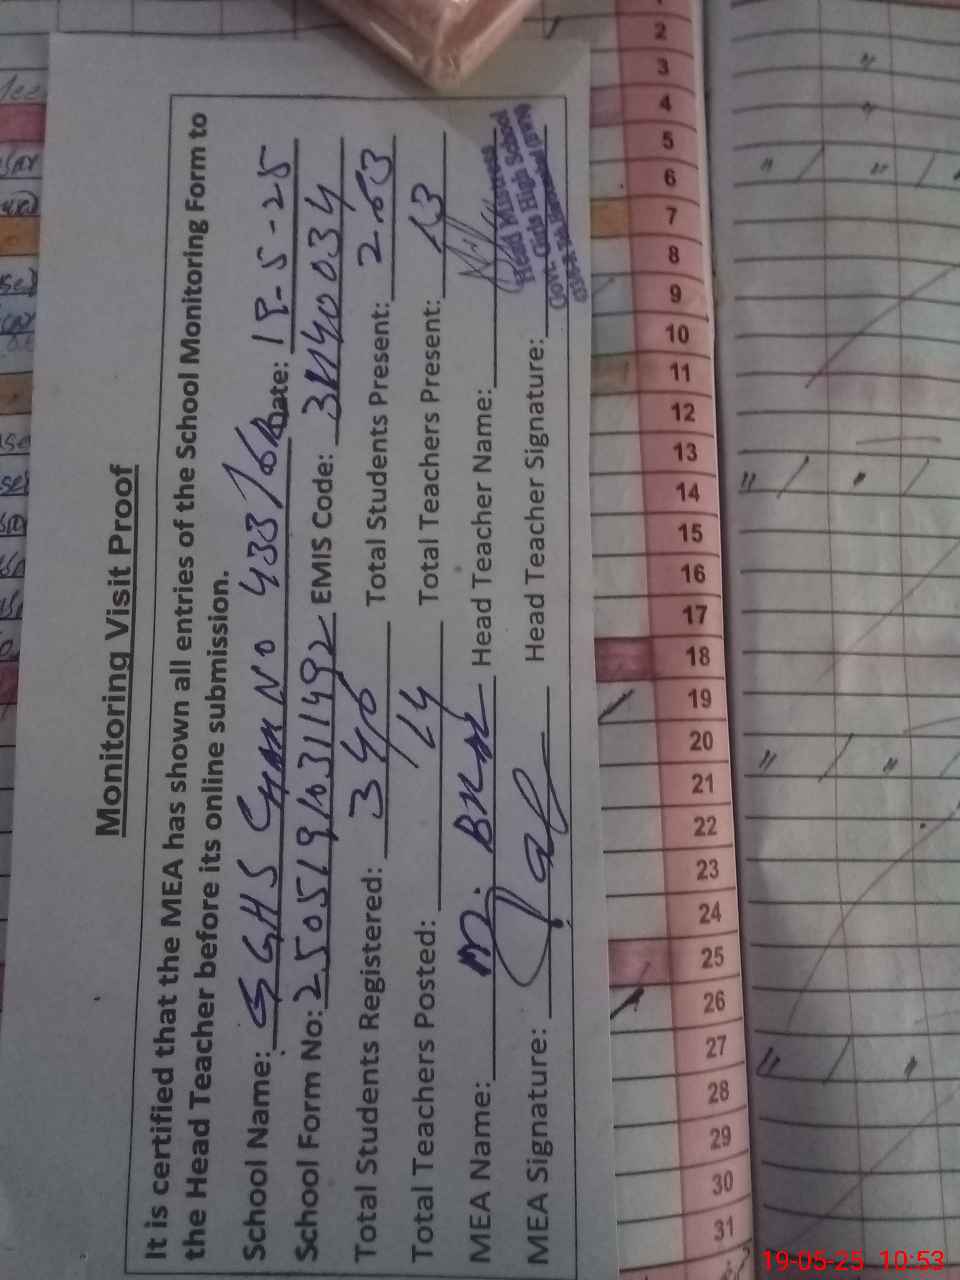 Monitoring Visit Proof
It is certified that the MEA has shown all entries of the School Monitoring Form to
the Head Teacher before its online submission.
School Name: GGHS CHAK NO 433/6R Date: 18-5-25
School Form No: 250519103111492 EMIS Code: 31140034
Total Students Registered: 340 Total Students Present: 263
Total Teachers Posted: 14 Total Teachers Present: 13
MEA Name: M. Head Teacher Name:
MEA Signature: Head Teacher Signature:
Head Mistress
Govt. Girls High School
1
2
3
4
5
6
7
8
9
10
11
12
13
14
15
16
17
18
19
20
21
22
23
24
25
26
27
28
29
30
31
19-05-25 10:53